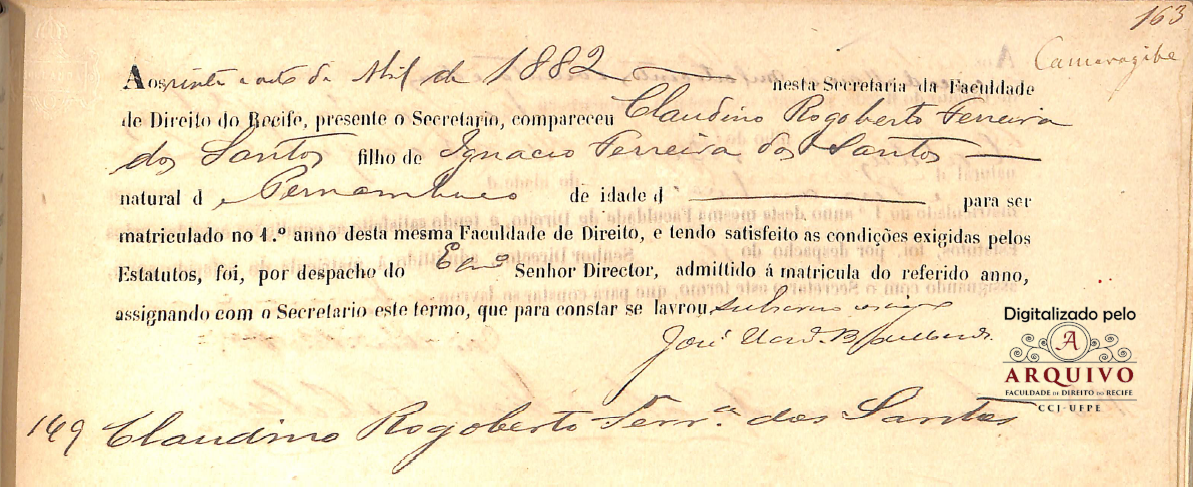 163
Camaragibe
Aos vinte e oito de Abril de 1882 nesta Secretaria da Faculdade
de Direito do Recife, presente o Secretario, compareceu Claudino Rogoberto Ferreira
dos Santos filho de Ignacio Ferreira dos Santos
natural d e Pernambuco de idade d para ser
matriculado no 1.º anno desta mesma Faculdade de Direito, e tendo satisfeito as condições exigidas pelos
Estatutos, foi, por despacho do Exmo Senhor Director, admittido á matricula do referido anno,
assignando com o Secretario este termo, que para constar se lavrou
José
149 Claudino Rogoberto Ferr.ª dos Santos
Digitalizado pelo
A
ARQUIVO
FACULDADE DE DIREITO DO RECIFE
CCJ-UFPE